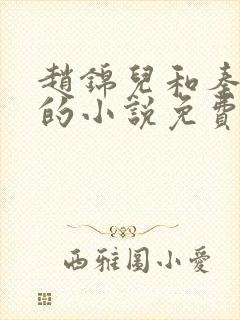 趙錦兒和秦
的小說免費
西雅圖小愛